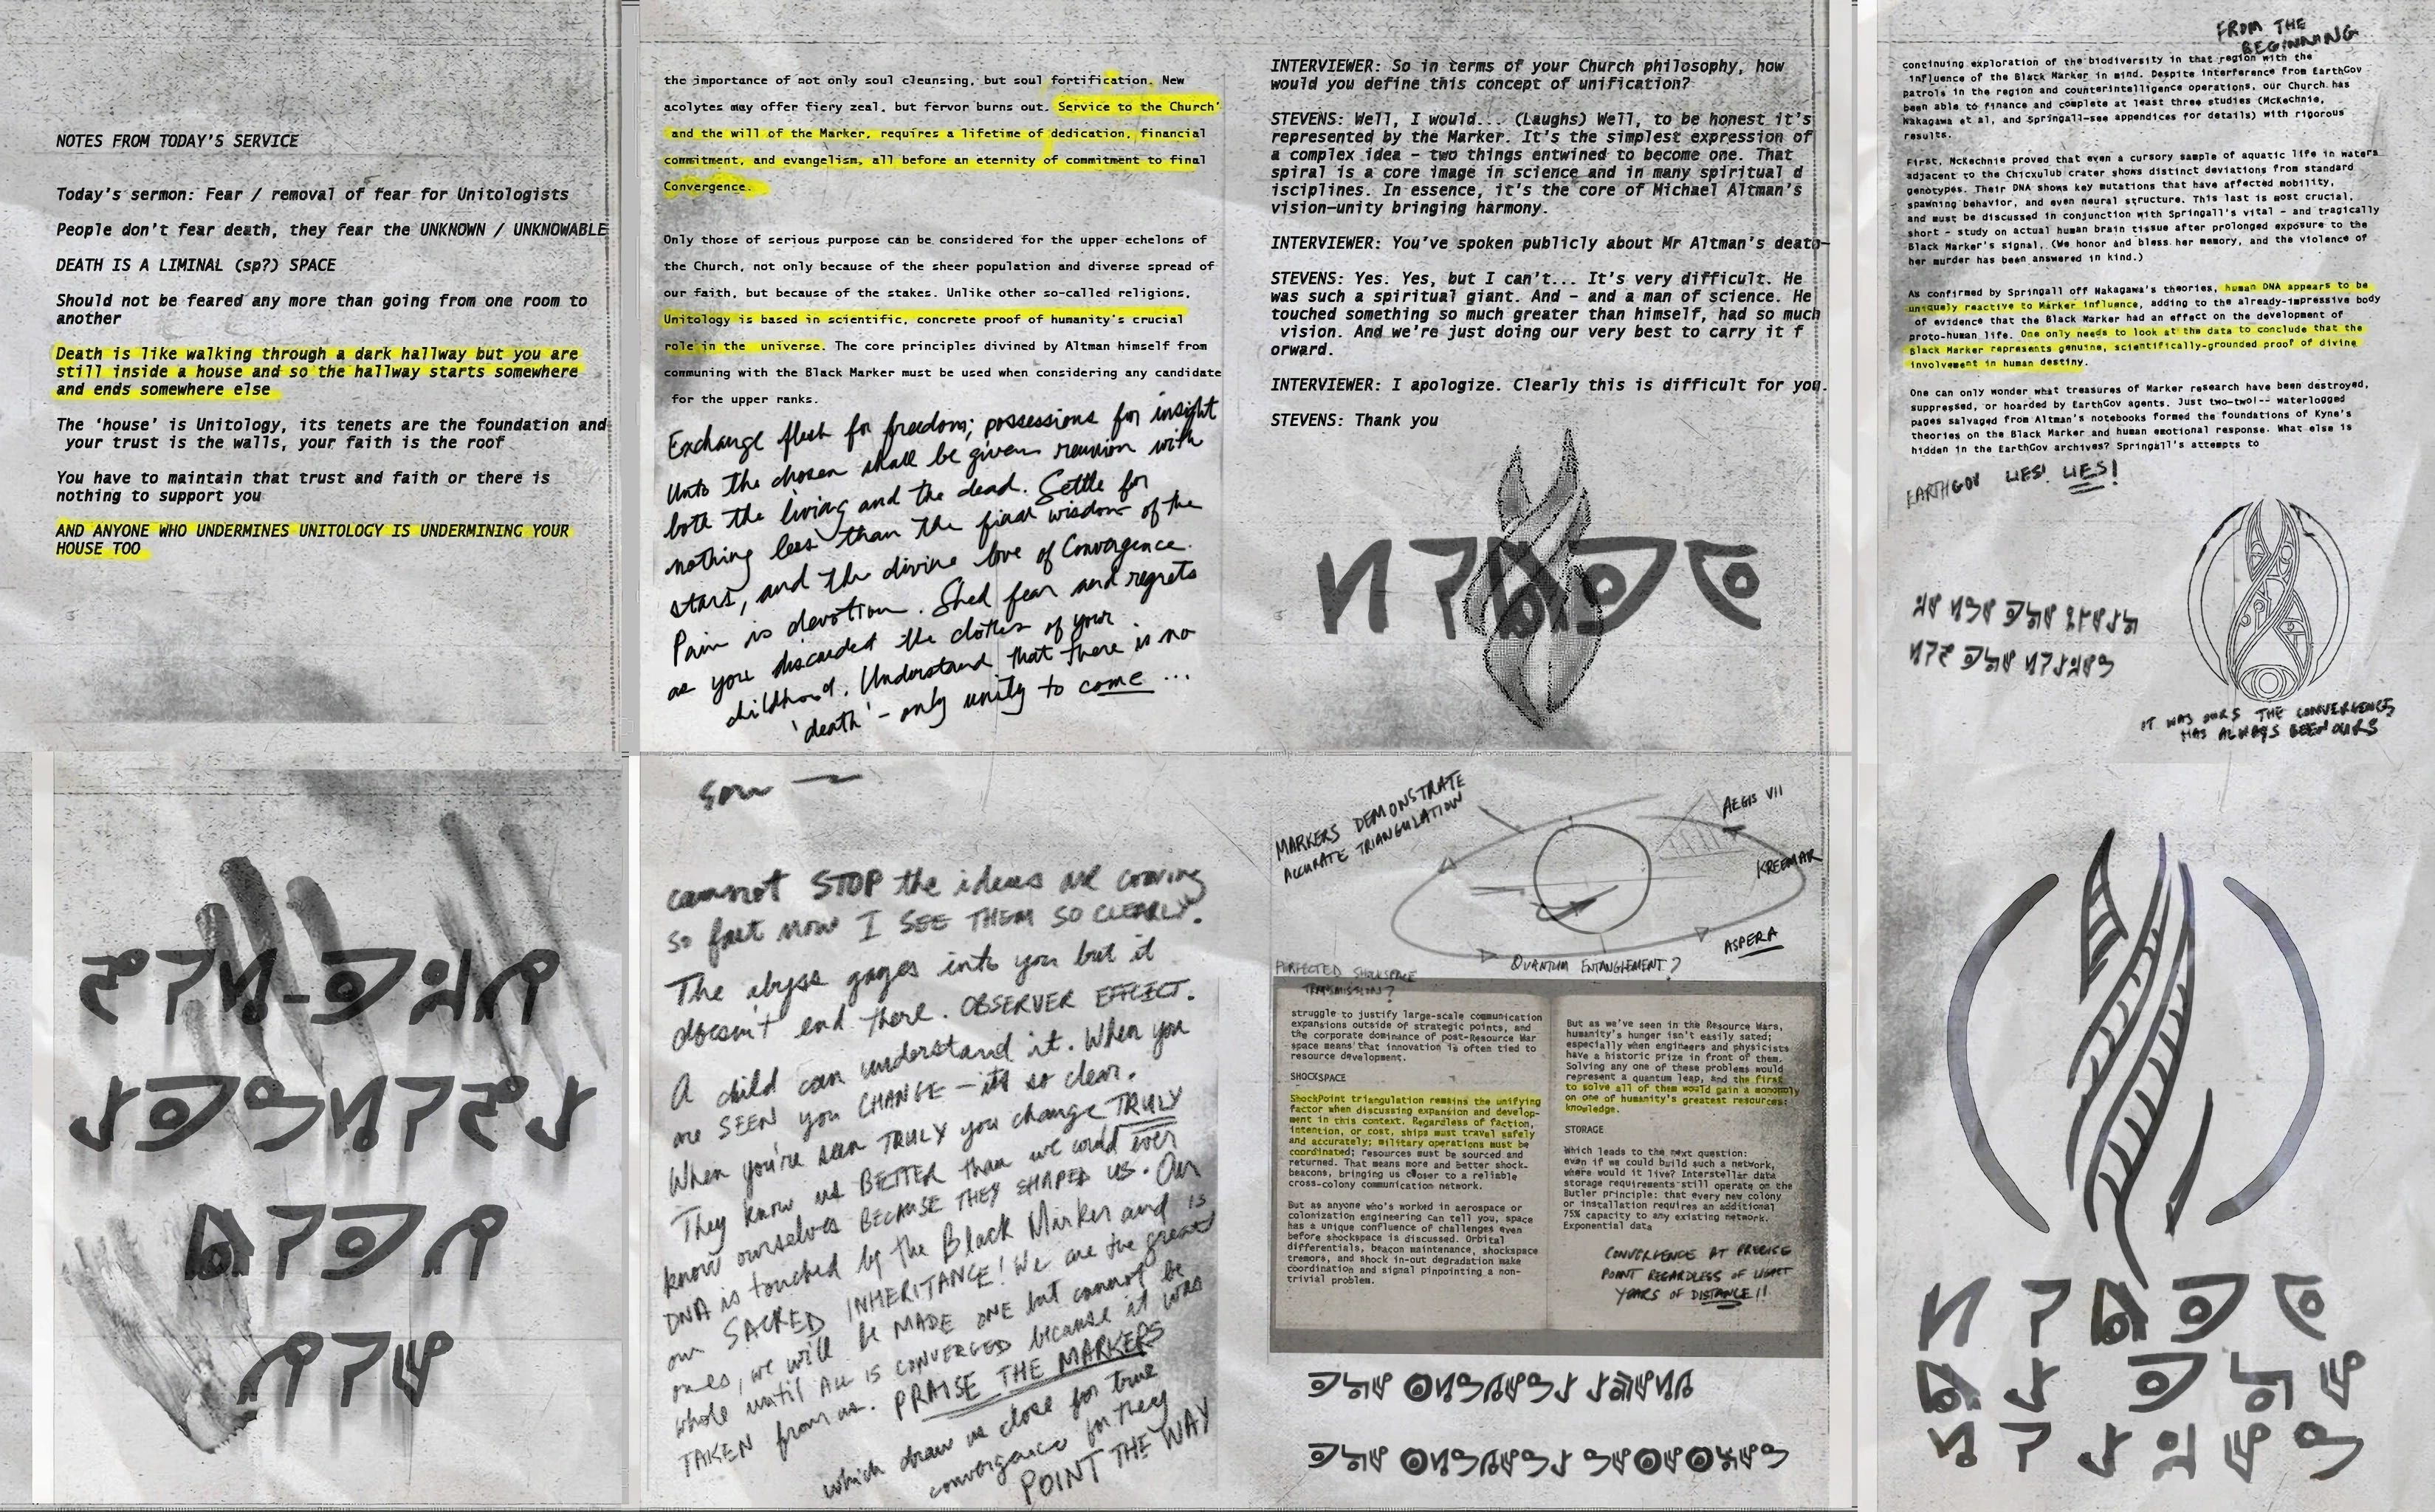 NOTES FROM TODAY'S SERVICE
Today's sermon: Fear / removal of fear for Unitologists
People don't fear death, they fear the UNKNOWN / UNKNOWABLE
DEATH IS A LIMINAL (sp?) SPACE
Should not be feared any more than going from one room to
another
Death is like walking through a dark hallway but you are
still inside a house and so the hallway starts somewhere
and ends somewhere else
The 'house' is Unitology, its tenets are the foundation and
your trust is the walls, your faith is the roof
You have to maintain that trust and faith or there is
nothing to support you
AND ANYONE WHO UNDERMINES UNITOLOGY IS UNDERMINING YOUR
HOUSE TOO
the importance of not only soul cleansing, but soul fortification. New
acolytes may offer fiery zeal, but fervor burns out. Service to the Church'
and the will of the Marker, requires a lifetime of dedication, financial
commitment, and evangelism, all before an eternity of commitment to final
Convergence.
Only those of serious purpose can be considered for the upper echelons of
the Church, not only because of the sheer population and diverse spread of
our faith, but because of the stakes. Unlike other so-called religions,
Unitology is based in scientific, concrete proof of humanity's crucial
role in the universe. The core principles divined by Altman himself from
communing with the Black Marker must be used when considering any candidate
for the upper ranks.
Exchange flesh for freedom; possessions for insight
Unto the chosen shall be given reunion with
both the living and the dead. Settle for
nothing less than the final wisdom of the
stars, and the divine love of Convergence.
Pain is devotion. Shed fear and regrets
as you discarded the clothes of your
childhood. Understand that there is no
'death' - only unity to come ...
INTERVIEWER: So in terms of your Church philosophy, how
would you define this concept of unification?
STEVENS: Well, I would... (Laughs) Well, to be honest it's
represented by the Marker. It's the simplest expression of
a complex idea - two things entwined to become one. That
spiral is a core image in science and in many spiritual d
isciplines. In essence, it's the core of Michael Altman's
vision-unity bringing harmony.
INTERVIEWER: You've spoken publicly about Mr Altman's death-
STEVENS: Yes. Yes, but I can't... It's very difficult. He
was such a spiritual giant. And - and a man of science. He
touched something so much greater than himself, had so much
vision. And we're just doing our very best to carry it f
orward.
INTERVIEWER: I apologize. Clearly this is difficult for you.
STEVENS: Thank you
FROM THE
BEGINNING
continuing exploration of the biodiversity in that region with the
influence of the Black Marker in mind. Despite interference from EarthGov
patrols in the region and counterintelligence operations, our Church has
been able to finance and complete at least three studies (McKechnie,
Nakagawa et al, and Springall-see appendices for details) with rigorous
results.
First, McKechnie proved that even a cursory sample of aquatic life in waters
adjacent to the Chicxulub crater shows distinct deviations from standard
genotypes. Their DNA shows key mutations that have affected mobility,
spawning behavior, and even neural structure. This last is most crucial,
and must be discussed in conjunction with Springall's vital - and tragically
short - study on actual human brain tissue after prolonged exposure to the
Black Marker's signal. (We honor and bless her memory, and the violence of
her murder has been answered in kind.)
As confirmed by Springall off Nakagawa's theories, human DNA appears to be
uniquely reactive to Marker influence, adding to the already-impressive body
of evidence that the Black Marker had an effect on the development of
proto-human life. One only needs to look at the data to conclude that the
Black Marker represents genuine, scientifically-grounded proof of divine
involvement in human destiny.
One can only wonder what treasures of Marker research have been destroyed,
suppressed, or hoarded by EarthGov agents. Just two-two!-- waterlogged
pages salvaged from Altman's notebooks formed the foundations of Kyne's
theories on the Black Marker and human emotional response. What else is
hidden in the EarthGov archives? Springall's attempts to
EARTHGOV LIES! LIES!
IT WAS OURS THE CONVERGENCE
HAS ALWAYS BEEN OURS
cannot STOP the ideas are coming
so fast now I SEE THEM SO CLEARLY.
The abyss gazes into you but it
doesn't end there. OBSERVER EFFECT.
A child can understand it. When you
are SEEN you CHANGE - it's so clear.
When you're seen TRULY you change TRULY
They know us BETTER than we could ever
know ourselves BECAUSE THEY SHAPED US. Our
DNA is touched by the Black Marker and is
our SACRED INHERITANCE! We are the great
ones, we will be MADE ONE but cannot be
whole until ALL IS CONVERGED because it was
TAKEN from us. PRAISE THE MARKERS
which draw us close for true
convergence for they
POINT THE WAY
MARKERS DEMONSTRATE
ACCURATE TRIANGULATION
AEGIS VII
KREEMAR
ASPERA
QUANTUM ENTANGLEMENT?
PERFECTED SHOCKSPACE
TRANSMISSION?
struggle to justify large-scale communication
expansions outside of strategic points, and
the corporate dominance of post-Resource War
space means that innovation is often tied to
resource development.
SHOCKSPACE
ShockPoint triangulation remains the unifying
factor when discussing expansion and develop-
ment in this context. Regardless of faction,
intention, or cost, ships must travel safely
and accurately; military operations must be
coordinated; resources must be sourced and
returned. That means more and better shock-
beacons, bringing us closer to a reliable
cross-colony communication network.
But as anyone who's worked in aerospace or
colonization engineering can tell you, space
has a unique confluence of challenges even
before shockspace is discussed. Orbital
differentials, beacon maintenance, shockspace
tremors, and shock in-out degradation make
coordination and signal pinpointing a non-
trivial problem.
But as we've seen in the Resource Wars,
humanity's hunger isn't easily sated;
especially when engineers and physicists
have a historic prize in front of them.
Solving any one of these problems would
represent a quantum leap, and the first
to solve all of them would gain a monopoly
on one of humanity's greatest resources:
knowledge.
STORAGE
Which leads to the next question:
even if we could build such a network,
where would it live? Interstellar data
storage requirements still operate on the
Butler principle: that every new colony
or installation requires an additional
75% capacity to any existing network.
Exponential data
CONVERGENCE AT PRECISE
POINT REGARDLESS OF LIGHT
YEARS OF DISTANCE!!